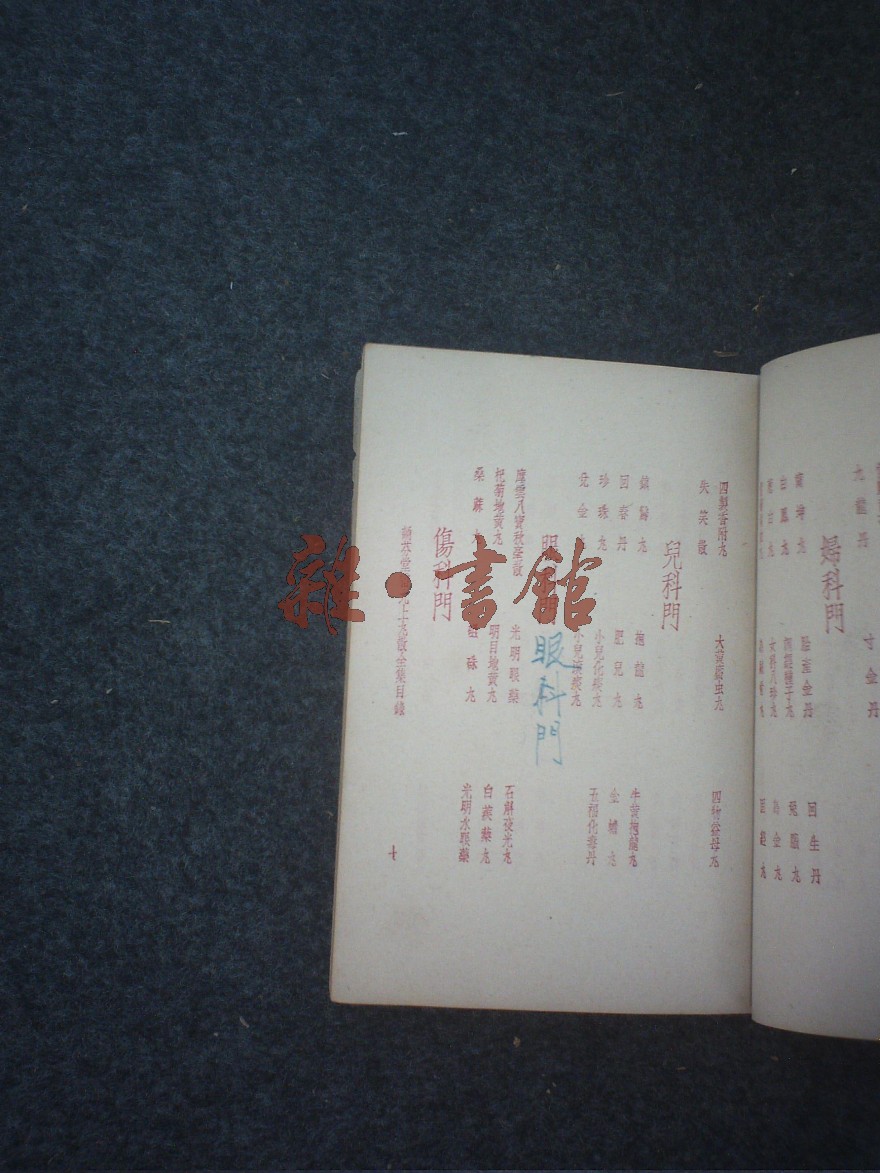 九龍丹
寸金丹
婦科門
坤丸
胎產金丹
回生丹
白鳳丸
調經種子丸
女科八珍丸
四製香附丸
大黃䗪虫丸
四物益母丸
失笑散
兒科門
抱龍丸
牛黃抱龍丸
回春丹
肥兒丸
金蟾丸
珍珠丸
小兒化
丸
五福化毒丹
兌金丸
小兒
丸
眼科門
摩雲八寶秋螢散
光明眼藥
石斛夜光丸
杞菊地黃丸
明目地黃丸
白蒺藜丸
桑麻丸
磁硃丸
光明水眼藥
傷科門
堂
丸散全集目錄
七
雜·書館